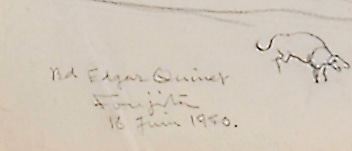 Bd Edgar Quinet
Foujita
16 Juin 1950.